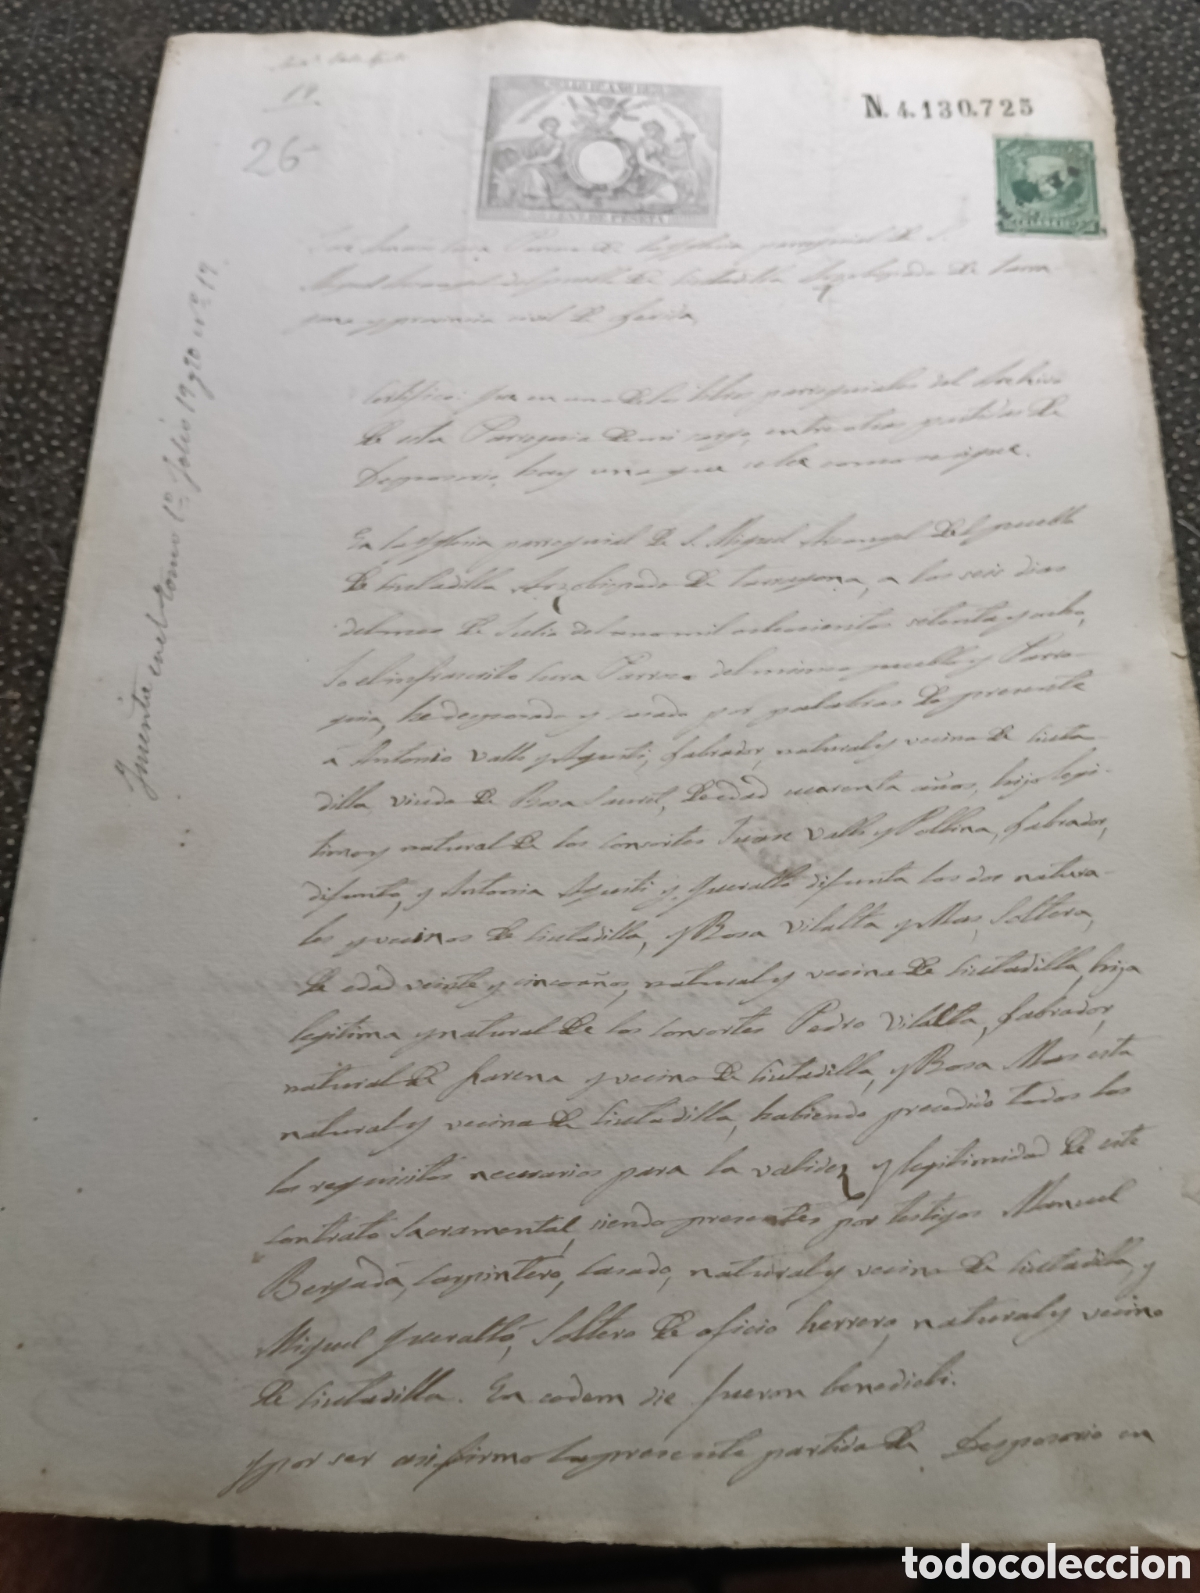 19.
26
N. 4.130.725
SELLO 12º AÑO 1878
CENT. DE PESETA
Cura Parroco de la Iglesia parroquial de S.
Miguel Arcangel del pueblo de Ciutadilla Arzobispado de Tarra
gona y provincia civil de Lerida
Certifico: Que en uno de los libros parroquiales del Archivo
de esta Parroquia de mi cargo, entre otras partidas de
Desposorio, hay una que se lee como se sigue.
En la Iglesia parroquial de S. Miguel Arcangel del pueblo
de Ciutadilla Arzobispado de Tarragona, a los seis dias
del mes de Julio del ano mil ochocientos setenta y ocho,
Yo el infrascrito Cura Parroco del mismo pueblo y Parro-
quia, he desposado y casado por palabras de presente
á Antonio Valls y Agusti, Labrador, natural y vecino de Ciuta-
dilla, viudo de Rosa, de edad cuarenta años, hijo legi-
timo y natural de los Consortes Juan Valls y Pollina, Labrador,
difunto, y Antonia Agusti y Queralto difunta los dos natura-
les y vecinos de Ciutadilla, y Rosa Vilalta y Mas, Soltera,
de edad veinte y cinco años, natural y vecina de Ciutadilla, hija
legitima y natural de los Consortes Pedro Vilalta, Labrador,
natural de y vecino de Ciutadilla, y Rosa Mas esta
natural y vecina de Ciutadilla, habiendo precedido todos los
los requisitos necesarios para la validez y legitimidad de este
contrato Sacramental, siendo presentes por testigos Manuel
Bergadá, Carpintero, Casado, natural y vecino de Ciutadilla, y
Miguel Queraltó, Soltero de oficio herrero, natural y vecino
de Ciutadilla. En eodem die fueron benedichi.
Y por ser asi firmo la presente partida de Desposorio en
en el tomo 1º folio 19 y 20 nº 19.
todocoleccion